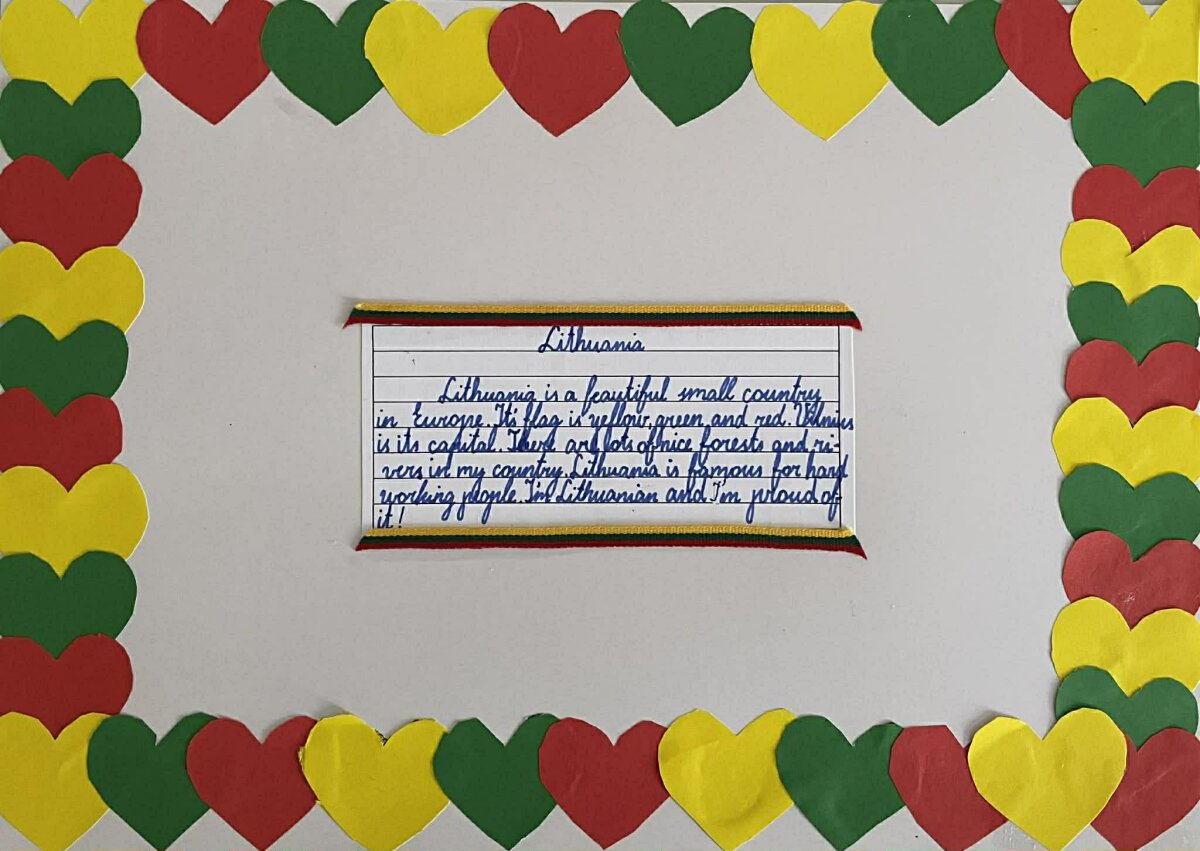 Lithuania
Lithuania is a beautiful small country
in Europe. It's flag is yellow, green and red. Vilnius
is its capital. There are lots of nice forests and ri-
vers in my country. Lithuania is famous for hard
working people. I'm Lithuanian and I'm proud of
it!